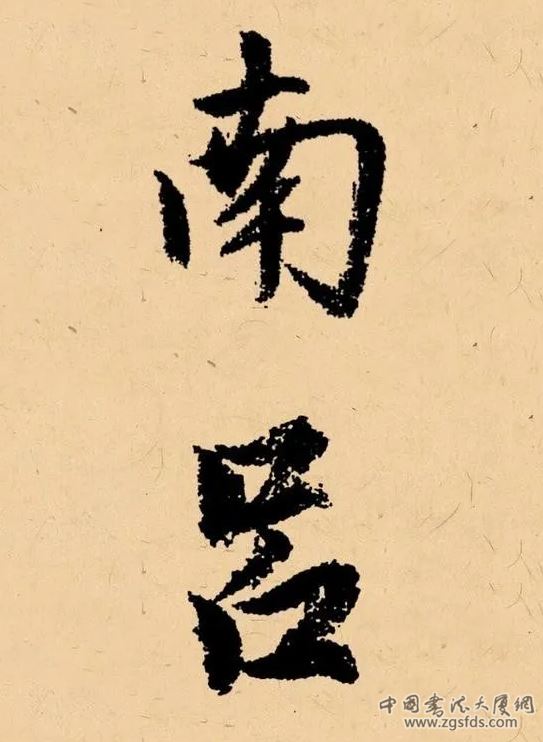 南
吕
中国书法大厦網
www.zgsfds.com